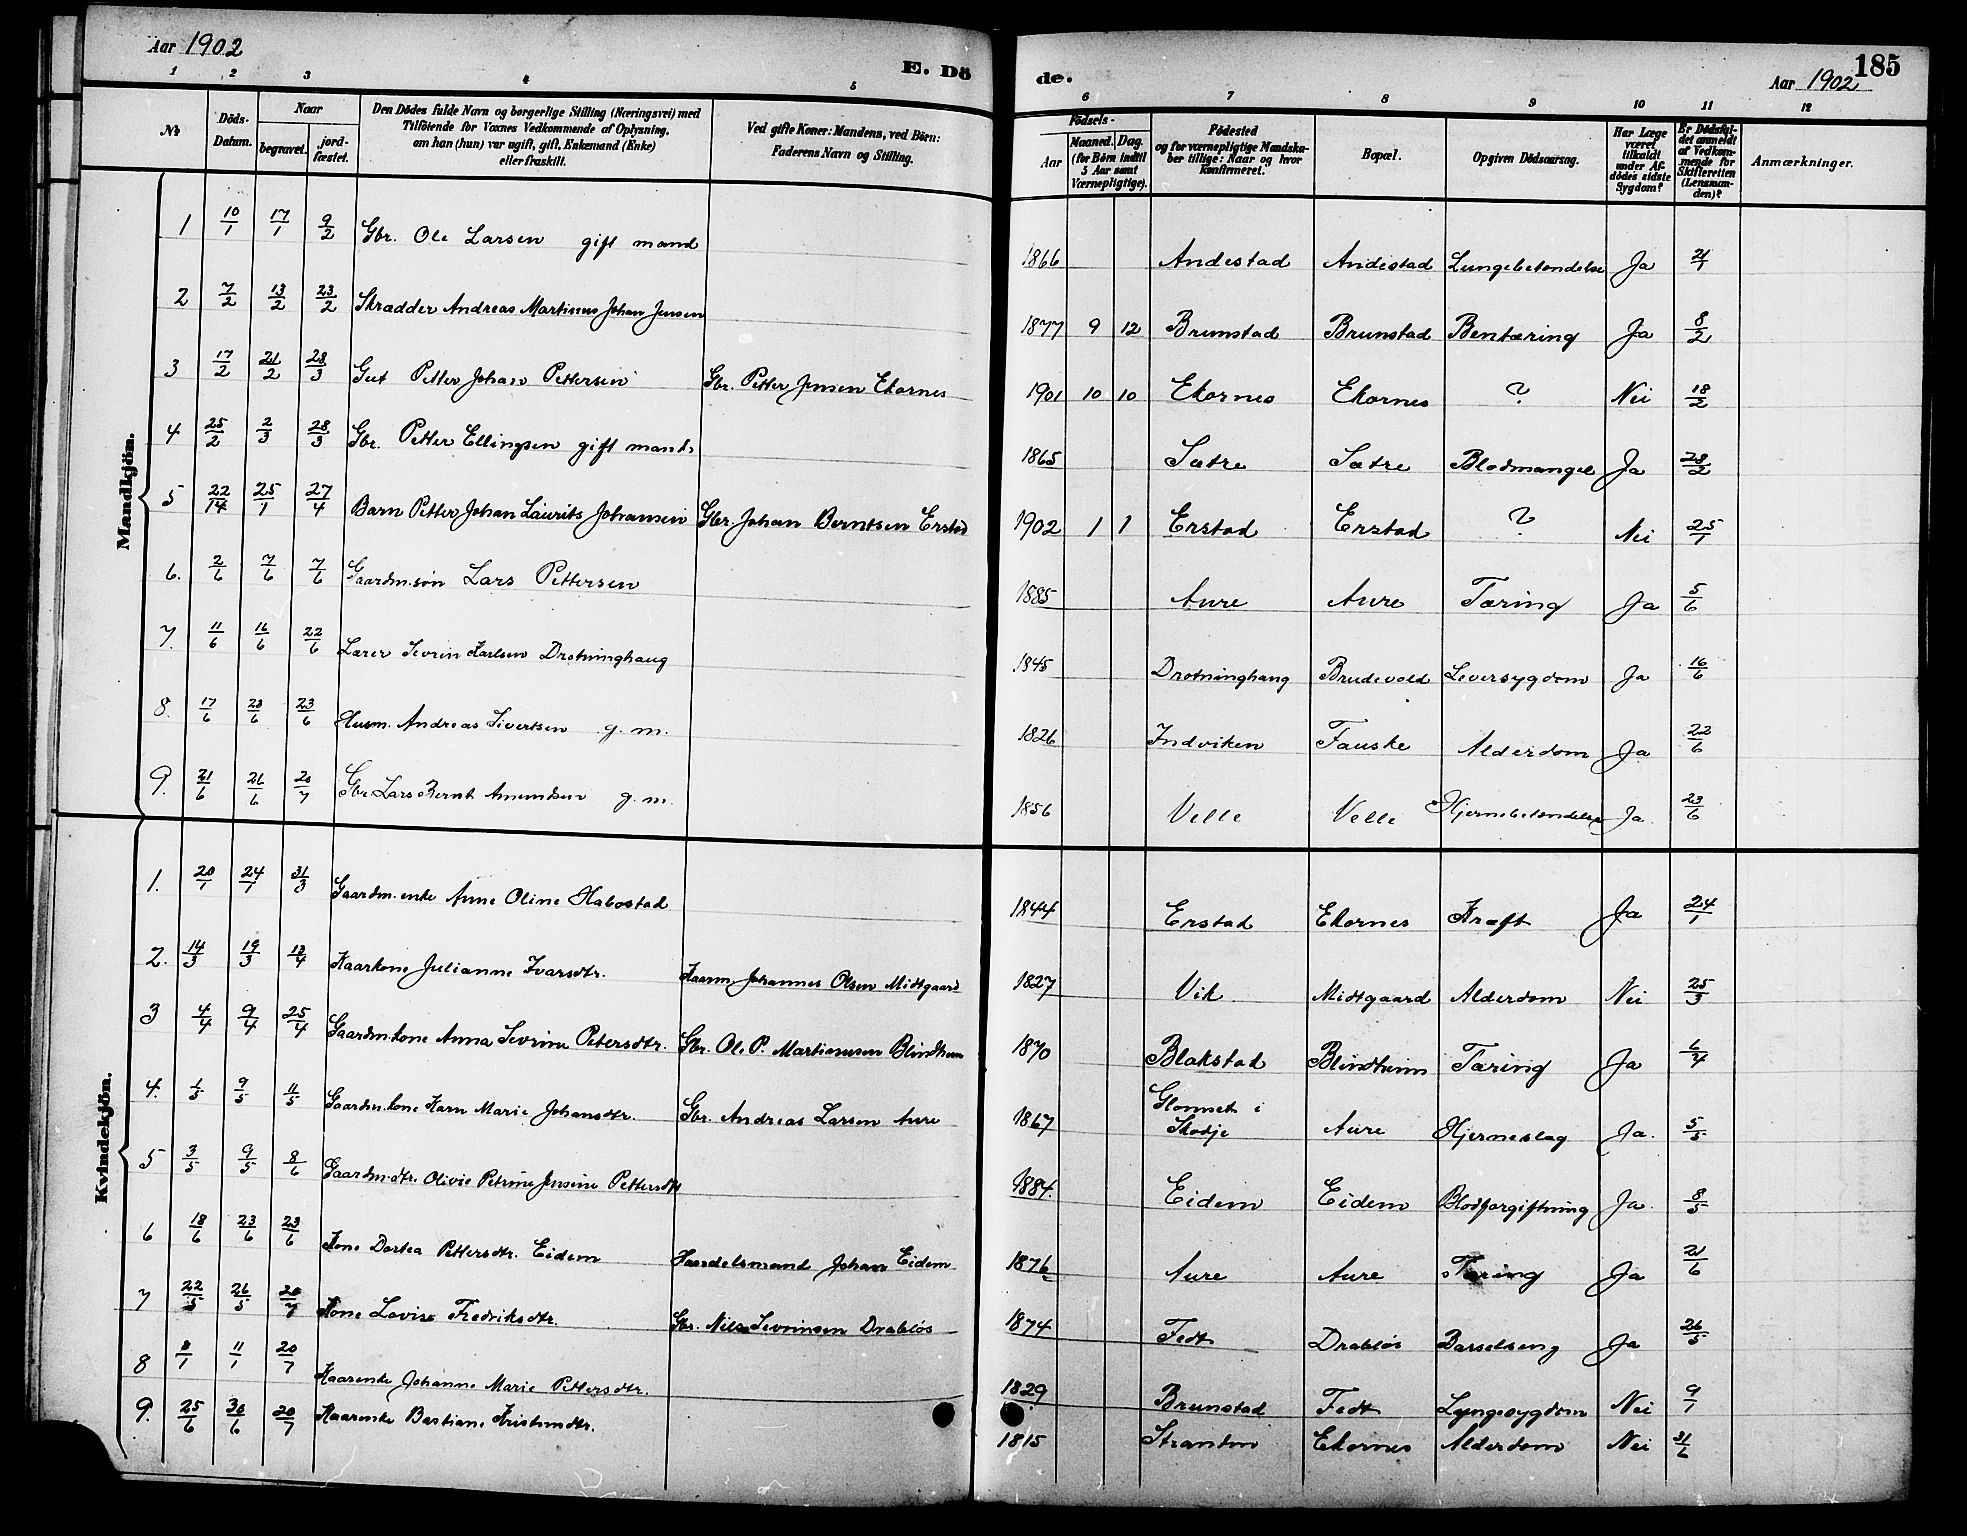 Aar 1902
E. Dö
de.
Aar 1902
185
1 2 3 4 5 6 7 8 9 10 11 12
№
Döds-Datum.
Naar
begravet.
jord-fæstet.
Den Dödes fulde Navn og borgerlige Stilling (Næringsvei) med
Tilföiende for Voxnes Vedkommende af Oplysning,
om han (hun) var ugift, gift, Enkemand (Enke)
eller fraskilt.
Ved gifte Koner: Mandens, ved Börn:
Faderens Navn og Stilling.
Födsels-
Aar
Maaned. Dag.
(for Börn indtil
5 Aar samt
Værnepligtige).
Födested
og for værnepligtige Mandska-
ber tillige: Naar og hvor
konfirmeret.
Bopæl.
Opgiven Dödsaarsag.
Har Læge
været
tilkaldt
under Af-
dödes sidste
Sygdom?
Er Dödsfal-
det anmeldt
af Vedkom-
mende for
Skifteretten
(Lensman-
den)?
Anmærkninger.
Mandkjön.
1 10/1 17/1 9/2 Gbr. Ole Larsen gift mand 1866 Andestad Andestad Lungebetændelse Ja 21/1
2 7/2 13/2 23/2 Skrædder Andreas Martinus Johan Jensen 1877 9 12 Brunstad Brunstad Bentæring Ja 8/2
3 17/2 21/2 28/3 Gut Petter Johan Pettersen Gbr. Petter Jensen Ekornes 1901 10 10 Ekornes Ekornes ? Nei 18/2
4 25/2 2/3 28/3 Gbr. Petter Ellingsen gift mand. 1865 Sætre Sætre Blodmangel Ja 28/2
5 22/14 25/1 27/4 Barn Petter Johan Laurits Johansen Gbr. Johan Berntsen Erstad 1902 1 1 Erstad Erstad ? Nei 25/1
6. 2/6 7/6 7/6 Gaardm.søn Lars Pettersen 1885 Aure Aure Tæring Ja 5/6
7. 11/6 16/6 22/6 Lærer Severin Karlsen Drotninghaug 1845 Drotninghaug Brudevold Leversygdom Ja 16/6
8. 17/6 23/6 23/6 Husm. Andreas Sivertsen g. m. 1826 Indviken Fauske Alderdom Ja 22/6
9. 21/6 26/6 20/7 Gbr. Lars Bernt Amundsen g. m. 1856 Velle Velle Hjernebetændelse Ja. 23/6
Kvindekjön.
1. 20/1 24/1 31/3 Gaardm. enke Anne Oline Habostad 1844 Erstad Ekornes Kræft Ja 24/1
2. 14/3 19/3 13/4 Kaarkone Julianne Ivarsdtr. Kaarm Johannes Olsen Midtgaard 1827 Vik Midtgaard Alderdom Nei 25/3
3 4/4 9/4 25/4 Gaardm.kone Anna Sevrine Petersdtr. Gbr. Ole P. Martinussen Blindheim 1870 Blakstad Blindheim Tæring Ja 6/4
4. 1/5 9/5 11/5 Gaardm. kone Karn Marie Johansdtr. Gbr. Andreas Larsen Aure 1867 Glomset i Skodje Aure Hjerneslag Ja. 5/5
5 3/5 9/5 8/6 Gaardm.dtr. Olivie Petrine Jensine Pettersdtr 1884. Eidem Eidem Blodforgiftning Ja. 8/5
6 18/6 23/6 23/6 Kone Dortea Pettersdtr. Eidem Handelsmand Johan Eidem 1876 Aure Aure Tæring Ja 21/6
7 22/5 26/5 20/7 Kone Lovise Fredriksdtr. Gbr. Nils Sevrinsen Drabløs 1874 Fedt Drabløs Barselseng Ja 26/5
8 8/1 11/1 20/7 Kaarenke Johanne Marie Pettersdtr. 1829 Brunstad Fedt Lungesygdom Nei 9/1
9. 25/6 30/6 20/7 Kaarenke Bastiane Kristensdtr. 1815 Stranden Ekornes Alderdom Nei 31/6